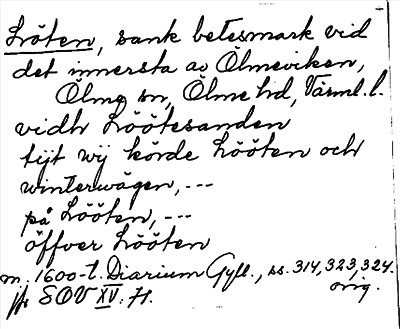 Lröten, sank betesmark vid
det innersta av Ölmeviken,
Ölme sn, Ölme hd, Värml. l.
vidh Lröötesanden
tijt wij körde Lrööten och
winterwägen, ---
på Lrööten, ---
öffver Lrööten
m. 1600-t. Diarium Gyll., ss. 314, 323, 324.
orig.
jfr SOV XV. 71.